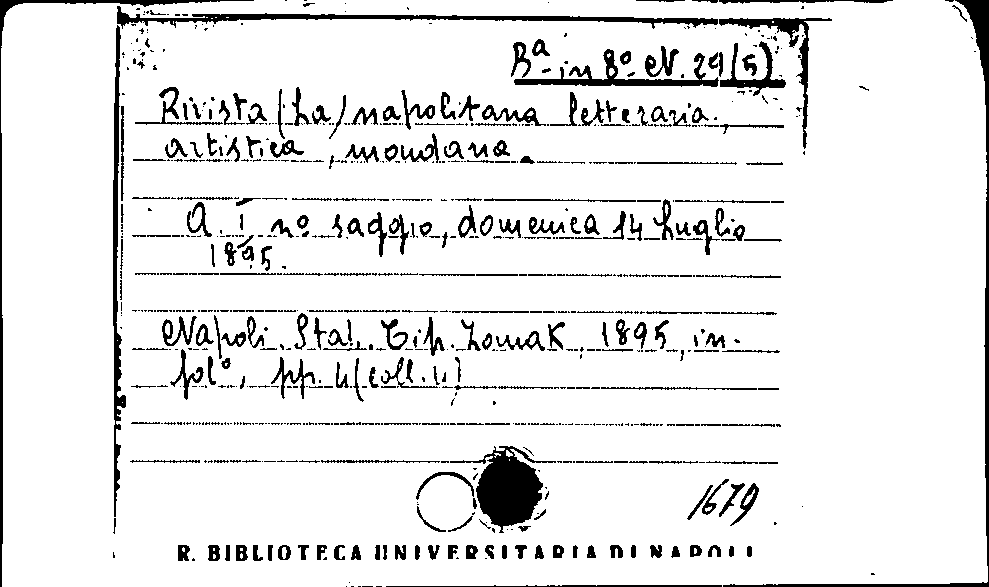 Bª in 8º N. 29(5)
Rivista (La) napolitana letteraria,
artistica, mondana.
A. I nº saggio, domenica 14 Luglio
1895.
Napoli. Stab. Tip. Zomak, 1895, in-
folº, pp. 4 (coll. 4)
1679
R. BIBLIOTECA UNIVERSITARIA DI NAPOLI